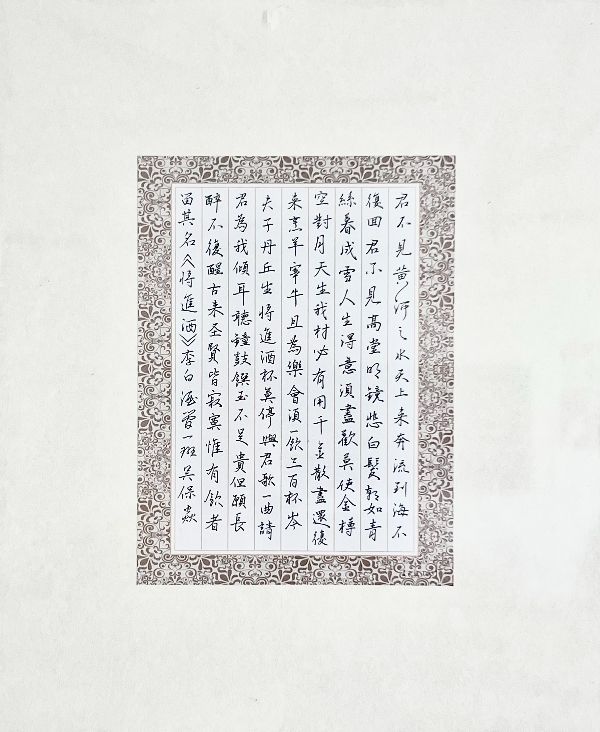 君不見黃河之水天上来奔流到海不
復回君不見高堂明镜悲白髮朝如青
絲暮成雪人生得意須盡歡莫使金樽
空對月天生我材必有用千金散盡還復
来烹羊宰牛且為樂會須一飲三百杯岑
夫子丹丘生將進酒杯莫停與君歌一曲請
君為我傾耳聽鐘鼓饌玉不足貴但願長
醉不復醒古来圣賢皆寂寞惟有飲者
留其名《將進酒》李白 一班 吴保焱